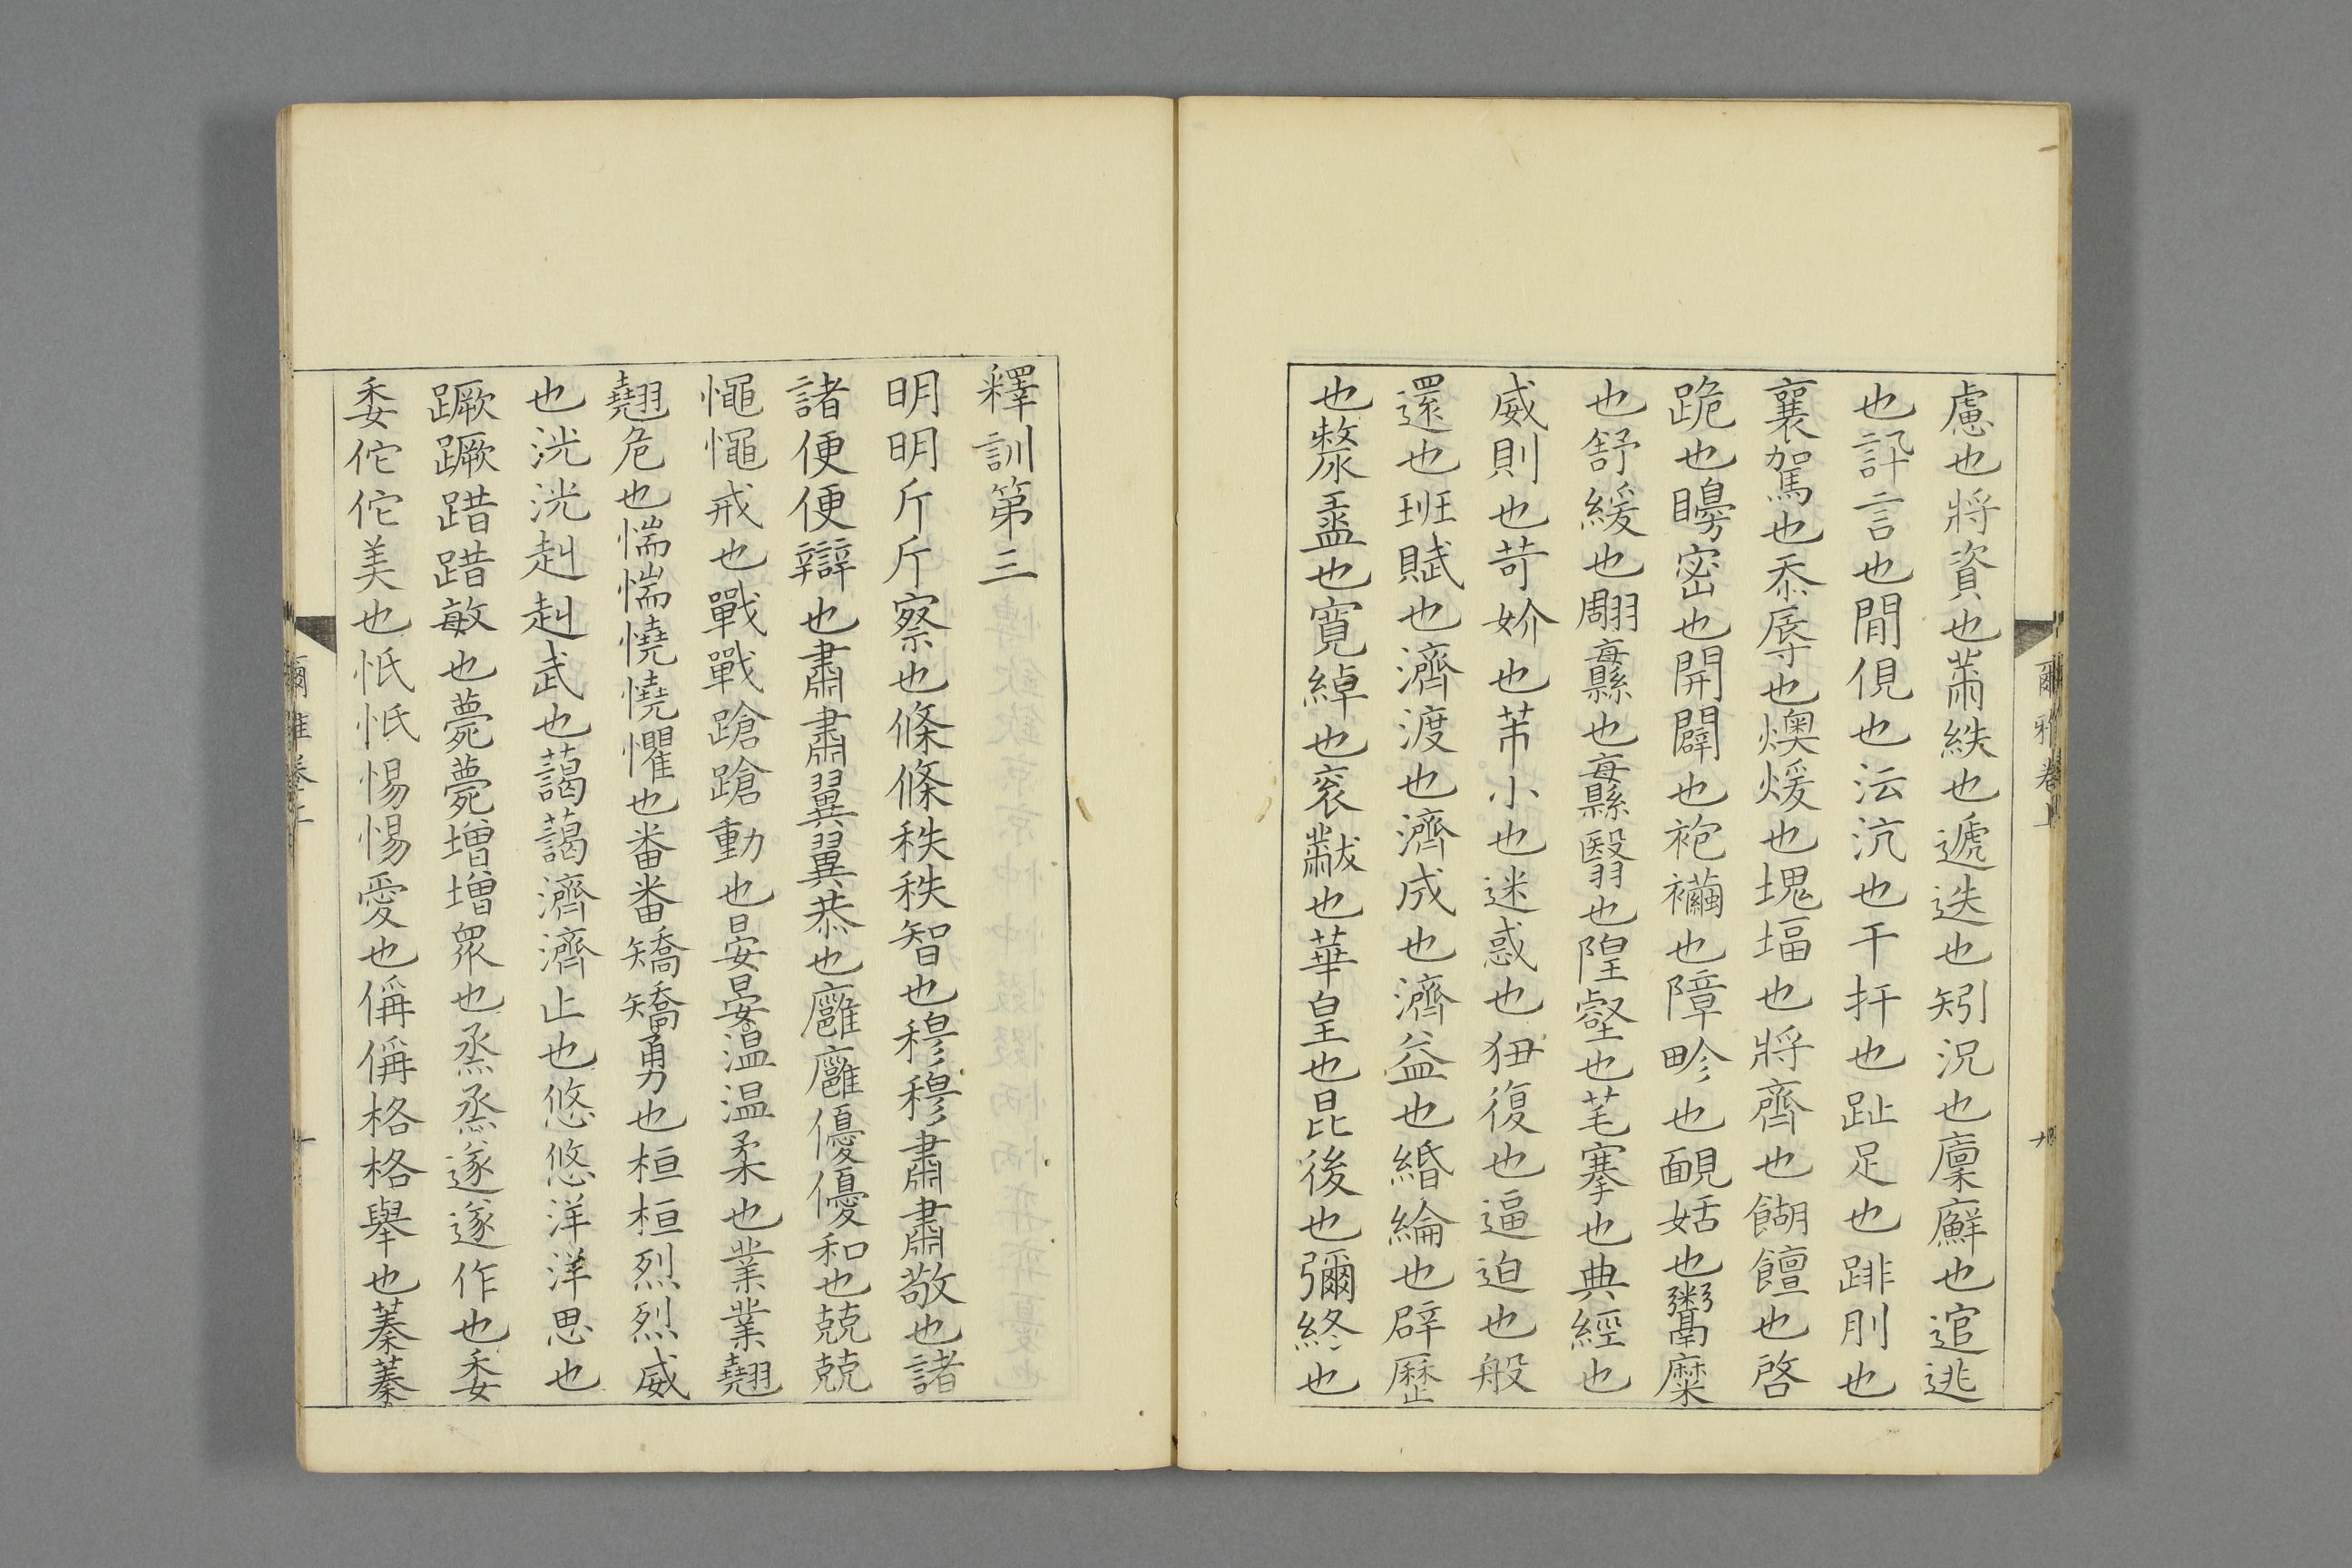 慮也將資也黹紩也遞迭也矧況也廩廯也逭逃
也訊言也閒俔也沄沆也干扞也趾足也跸刖也
襄駕也忝辱也燠煖也塊堛也將齊也餬饘也啓
跪也矊密也開闢也袍襺也障畛也靦姡也鬻糜
也舒緩也翢纛也纛翳也隍壑也芼搴也典經也
威則也苛妎也芾小也迷惑也狃復也逼迫也般
還也班賦也濟渡也濟成也濟益也緡綸也辟歷
也漦盝也寬綽也袞黻也華皇也昆後也彌終也
爾雅卷上
釋訓第三
明明斤斤察也條條秩秩智也穆穆肅肅敬也諸
諸便便辯也肅肅翼翼恭也廱廱優優和也兢兢
憴憴戒也戰戰蹌蹌動也晏晏温温柔也業業翹
翹危也惴惴憢憢懼也番番矯矯勇也桓桓烈烈威
也洸洸赳赳武也藹藹濟濟止也悠悠洋洋思也
蹶蹶踖踖敏也薨薨增增眾也烝烝遂遂作也委
委佗佗美也怟怟惕惕愛也偁偁格格舉也蓁蓁
爾雅卷上